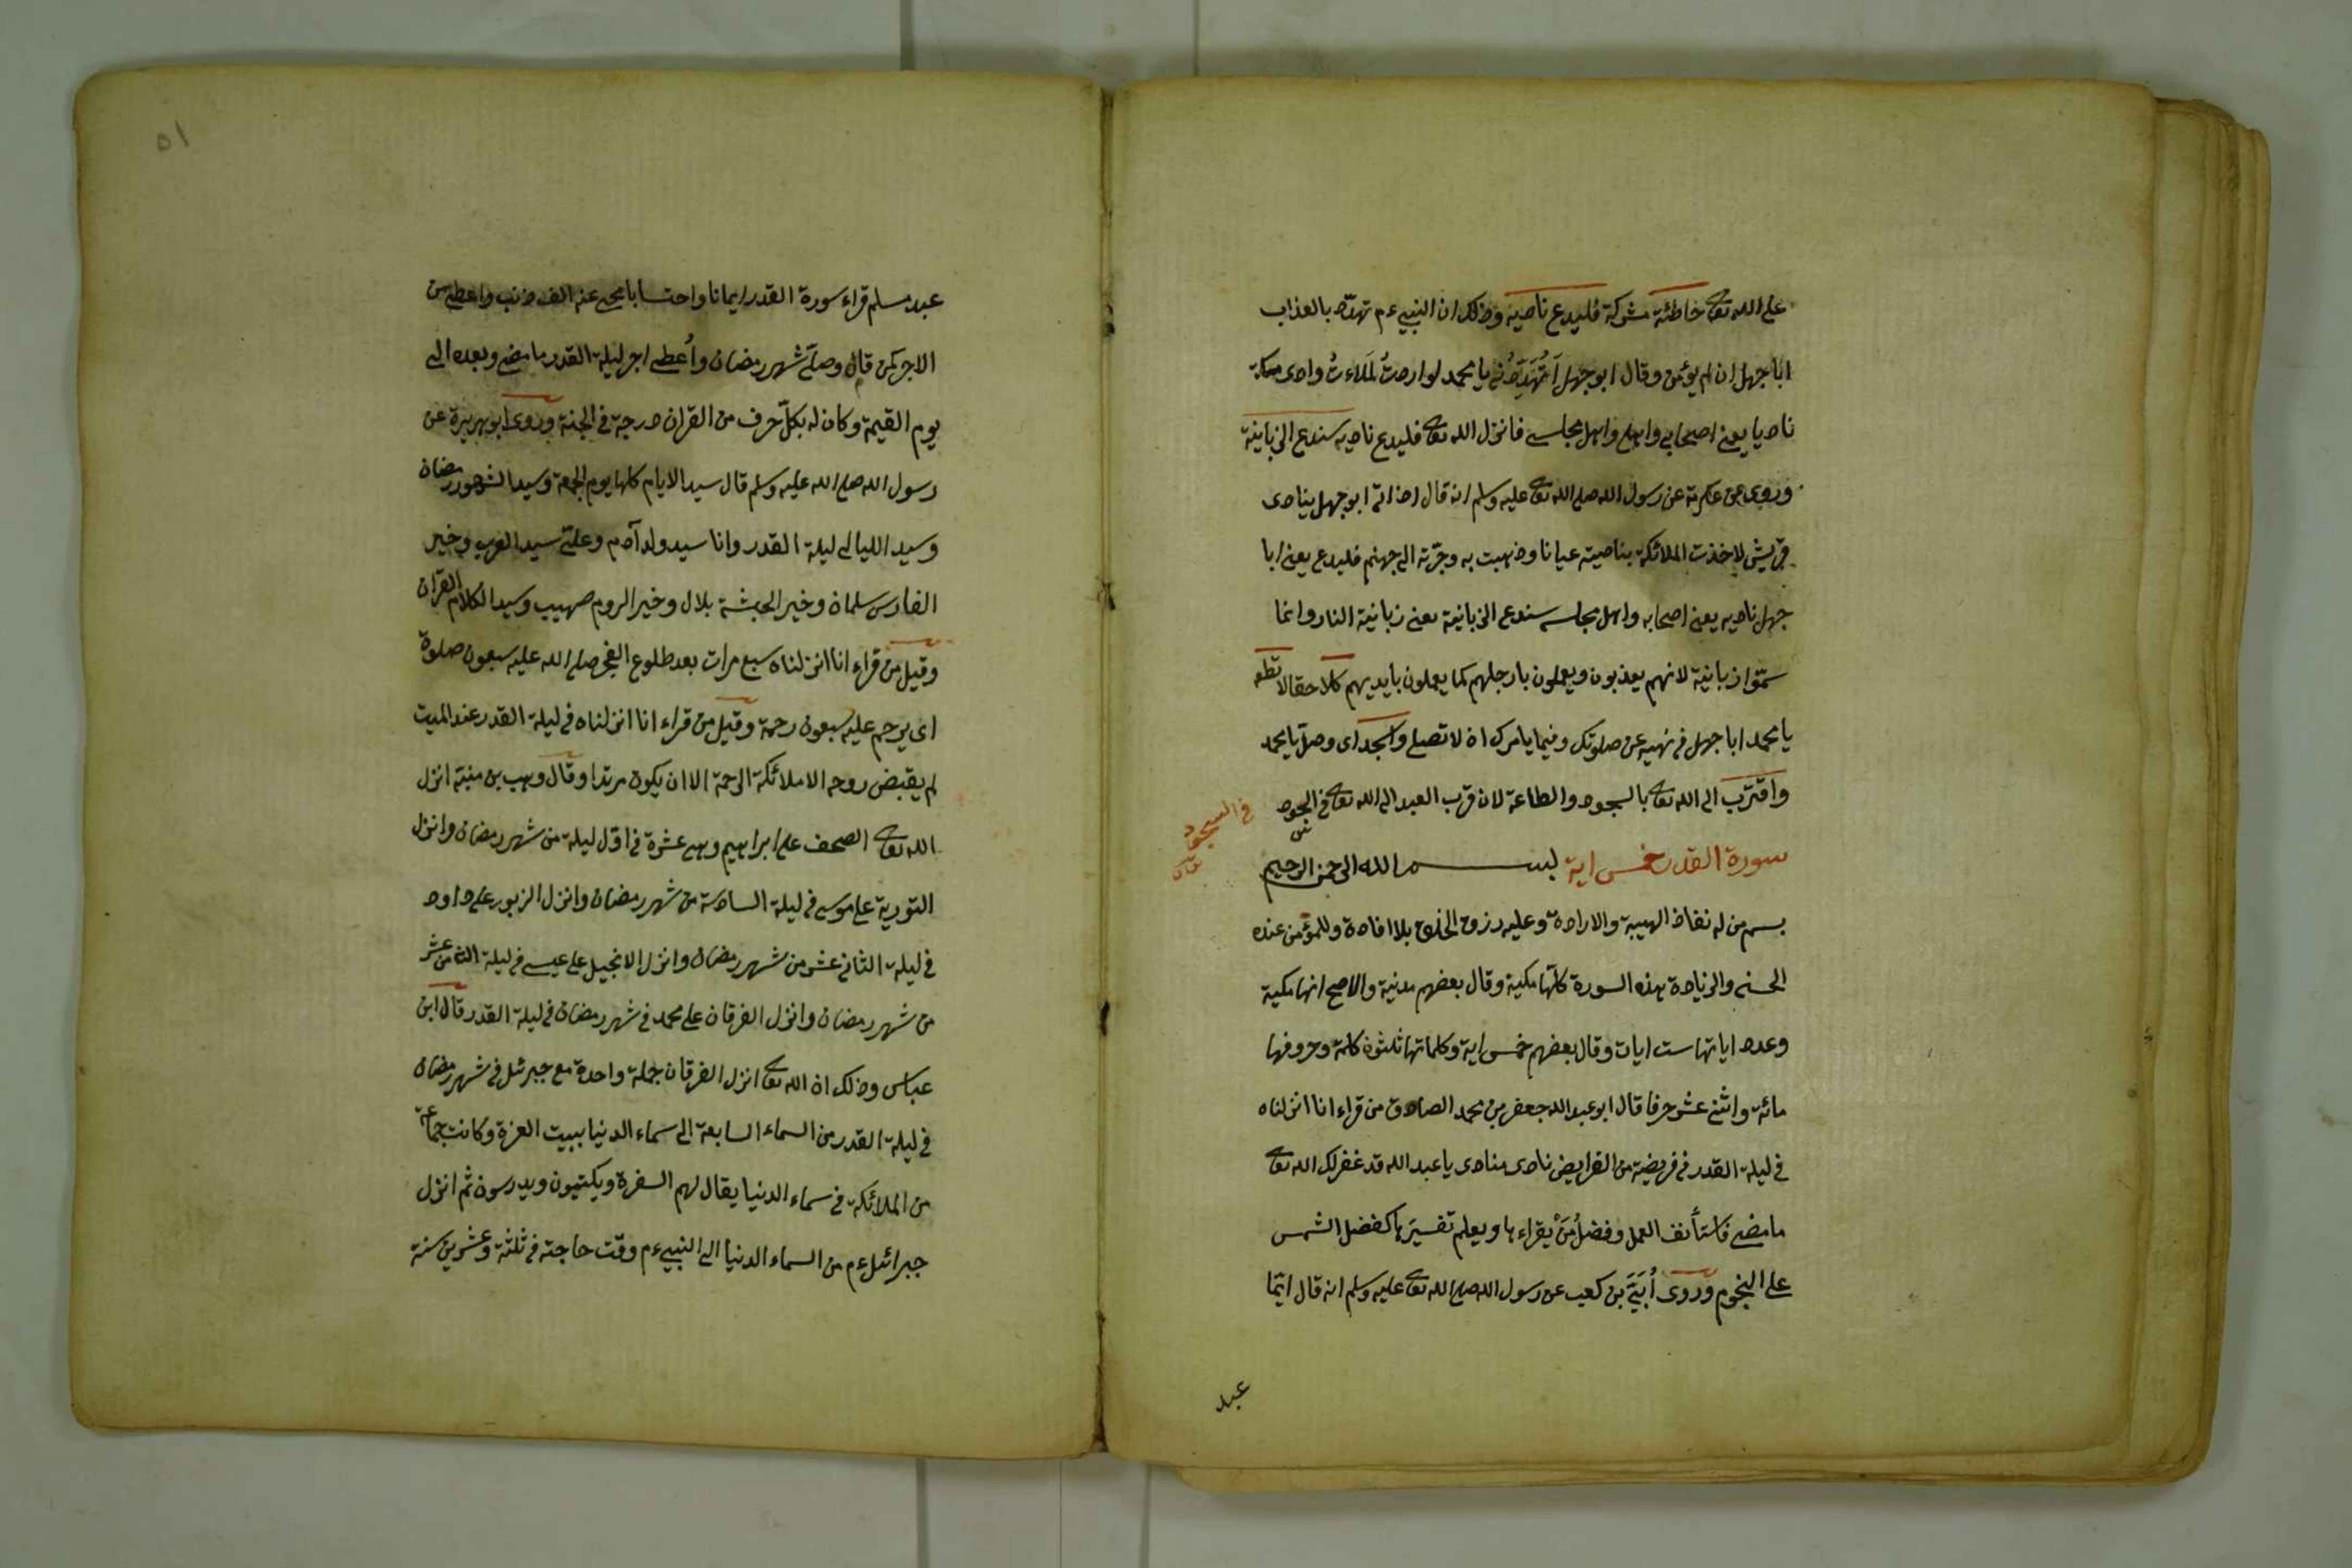 على الله تعالى خاطئة مشركة فليدع ناديه وذلك ان النبى ءم تهدّد بالعذاب
ابا جهل ان لم يؤمن وقال ابو جهل أتُهَدِّدُنى يا محمد لو اردتُ لَمَلاءتُ وادى مكة
ناديا يعنى اصحابى واهلى واهل مجلسى فانزل الله تعالى فليدع ناديه سندع الزبانية
وروى عن عكرمة عن رسول الله صلى الله تعالى عليه وسلم انه قال اذا اتى ابو جهل ينادى
قريش لاخذت الملائكة بناصيته عيانا وذهبت به وجرّته الى جهنم فليدع يعنى ابا
جهل ناديه يعنى اصحابه واهل مجلسه سندع الزبانية يعنى زبانية النار وانما
سمّوا زبانية لانهم يعذبون ويعملون بارجلهم كما يعملون بايديهم كلا حقا لا تطعه
يا محمد ابا جهل فى نهيه عن صلوتك وفيما يامرك ان لا تصلى واسجد اى وصلّ يا محمد
واقترب الى الله تعالى بالسجود والطاعة لان قرب العبد الى الله تعالى فى السجود
فى السجود
سورة القدر خمس اية بسم الله الرحمن الرحيم
بسم من له نفاذ الهيبة والارادة وعليه رزق الخلق بلا افادة وللمؤمن عنده
الحسنى والزيادة هذه السورة كلّها مكية وقال بعضهم مدنية والاصح انها مكية
وعدد اياتها ست ايات وقال بعضهم خمس اية وكلماتها ثلثون كلمة وحروفها
مائة واثنى عشر حرفا قال ابو عبد الله جعفر بن محمد الصادق من قراء انا انزلناه
فى ليلة القدر فى فريضة من الفرايض نادى منادى يا عبد الله قد غفر لك الله تعالى
ما مضى فاستأنف العمل وفضلُ مَنْ يقراءها ويعلم تفسيرَها كفضل الشمس
على النجوم وروى أُبَىّ بن كعب عن رسول الله صلى الله تعالى عليه وسلم انه قال ايّما
عبد
٥١
عبد مسلم قراء سورة القدر ايمانا واحتسابا محى عنه الف ذنب واعطى من
الاجر كمن قام وصلّى شهر رمضان وأعطى اجر ليلة القدر ما مضى وبعده الى
يوم القيمة وكان له بكلّ حرف من القران درجة فى الجنة وروى ابو هريرة عن
رسول الله صلى الله عليه وسلم قال سيد الايام كلها يوم الجمعة وسيد الشهور رمضان
وسيد الليالى ليلة القدر وانا سيد ولد آدم وعلىّ سيد العرب وخير
الفارس سلمان وخير الحبشة بلال وخير الروم صهيب وسيد الكلام القران
وقيل من قراء انا انزلناه سبع مرات بعد طلوع الفجر صلى الله عليه سبعون صلوة
اى يرحم عليه سبعون رحمة وقيل من قراء انا انزلناه فى ليلة القدر عند الميت
لم يقبض روحه الا ملائكة الرحمة الا ان يكون مرتدا وقال وهب بن منبّة انزل
الله تعالى الصحف على ابراهيم وهى عشرة فى اوّل ليلة من شهر رمضان وانزل
التورية على موسى فى ليلة السادسة من شهر رمضان وانزل الزبور على داود
فى ليلة الثانى عشر من شهر رمضان وانزل الانجيل على عيسى فى ليلة الثامن عشر
من شهر رمضان وانزل الفرقان على محمد فى شهر رمضان فى ليلة القدر قال ابن
عباس وذلك ان الله تعالى انزل الفرقان جملة واحدة مع جبرئل فى شهر رمضان
فى ليلة القدر من السماء السابعة الى سماء الدنيا ببيت العزة وكانت جماعة
من الملائكة فى سماء الدنيا يقال لهم السفرة ويكتبون ويدرسون ثم انزل
جبرائل ءم من السماء الدنيا الى النبى ءم وقت حاجته فى ثلثة وعشرين سنة